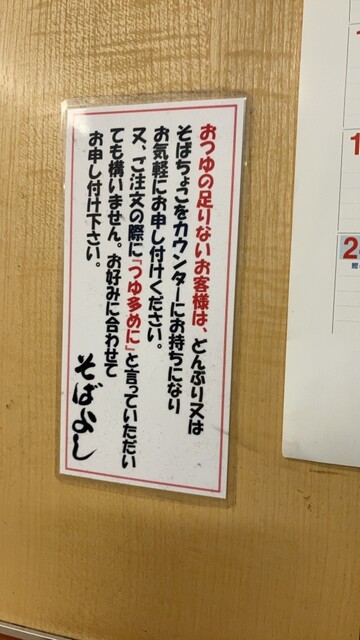 おつゆの足りないお客様は、どんぶり又は
そばちょこをカウンターにお持ちになり
お気軽にお申し付けください。
又、ご注文の際に「つゆ多めに」と言っていただい
ても構いません。お好みに合わせて
お申し付け下さい。
そばよし